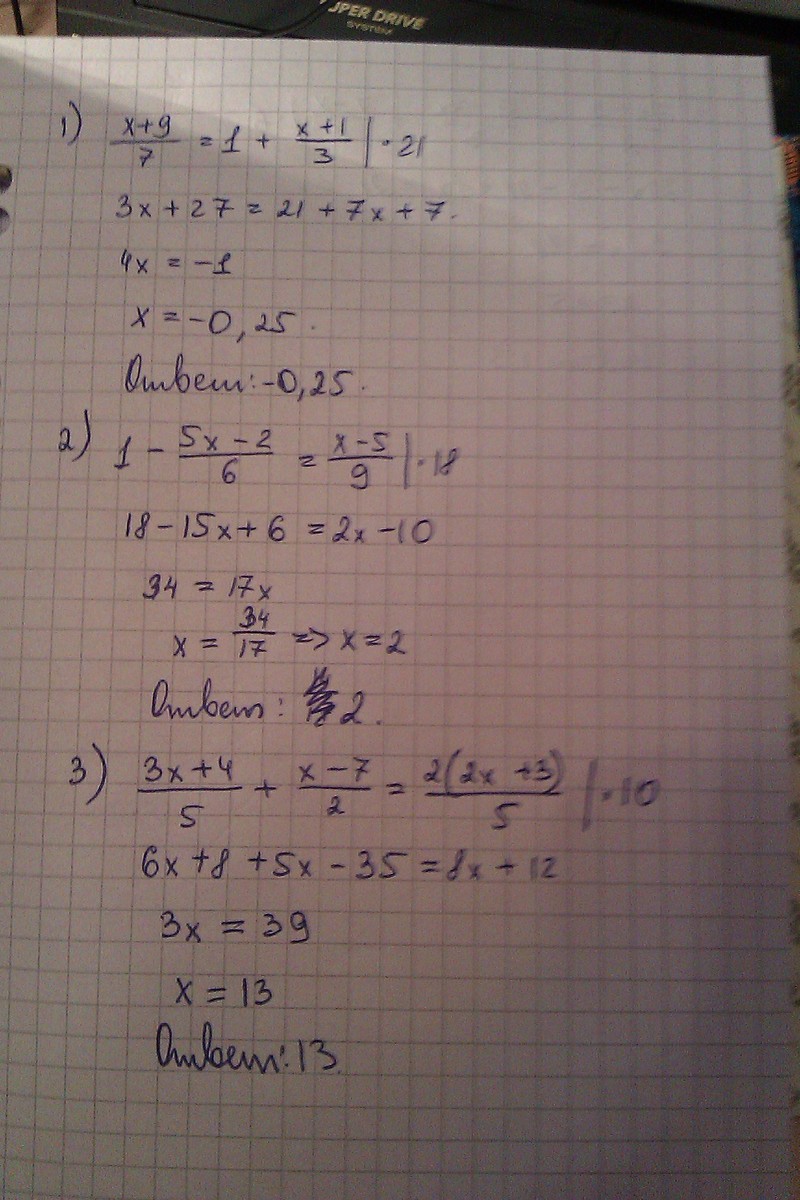 UPER DRIVE
SYSTEM
1) (x+9)/7 = 1 + (x+1)/3 | · 21
3x + 27 = 21 + 7x + 7.
4x = -1
x = -0,25.
Ответ: -0,25.
2) 1 - (5x-2)/6 = (x-5)/9 | · 18
18 - 15x + 6 = 2x - 10
34 = 17x
x = 34/17 => x = 2
Ответ: 2.
3) (3x+4)/5 + (x-7)/2 = 2(2x+3)/5 | · 10
6x + 8 + 5x - 35 = 8x + 12
3x = 39
x = 13
Ответ: 13.